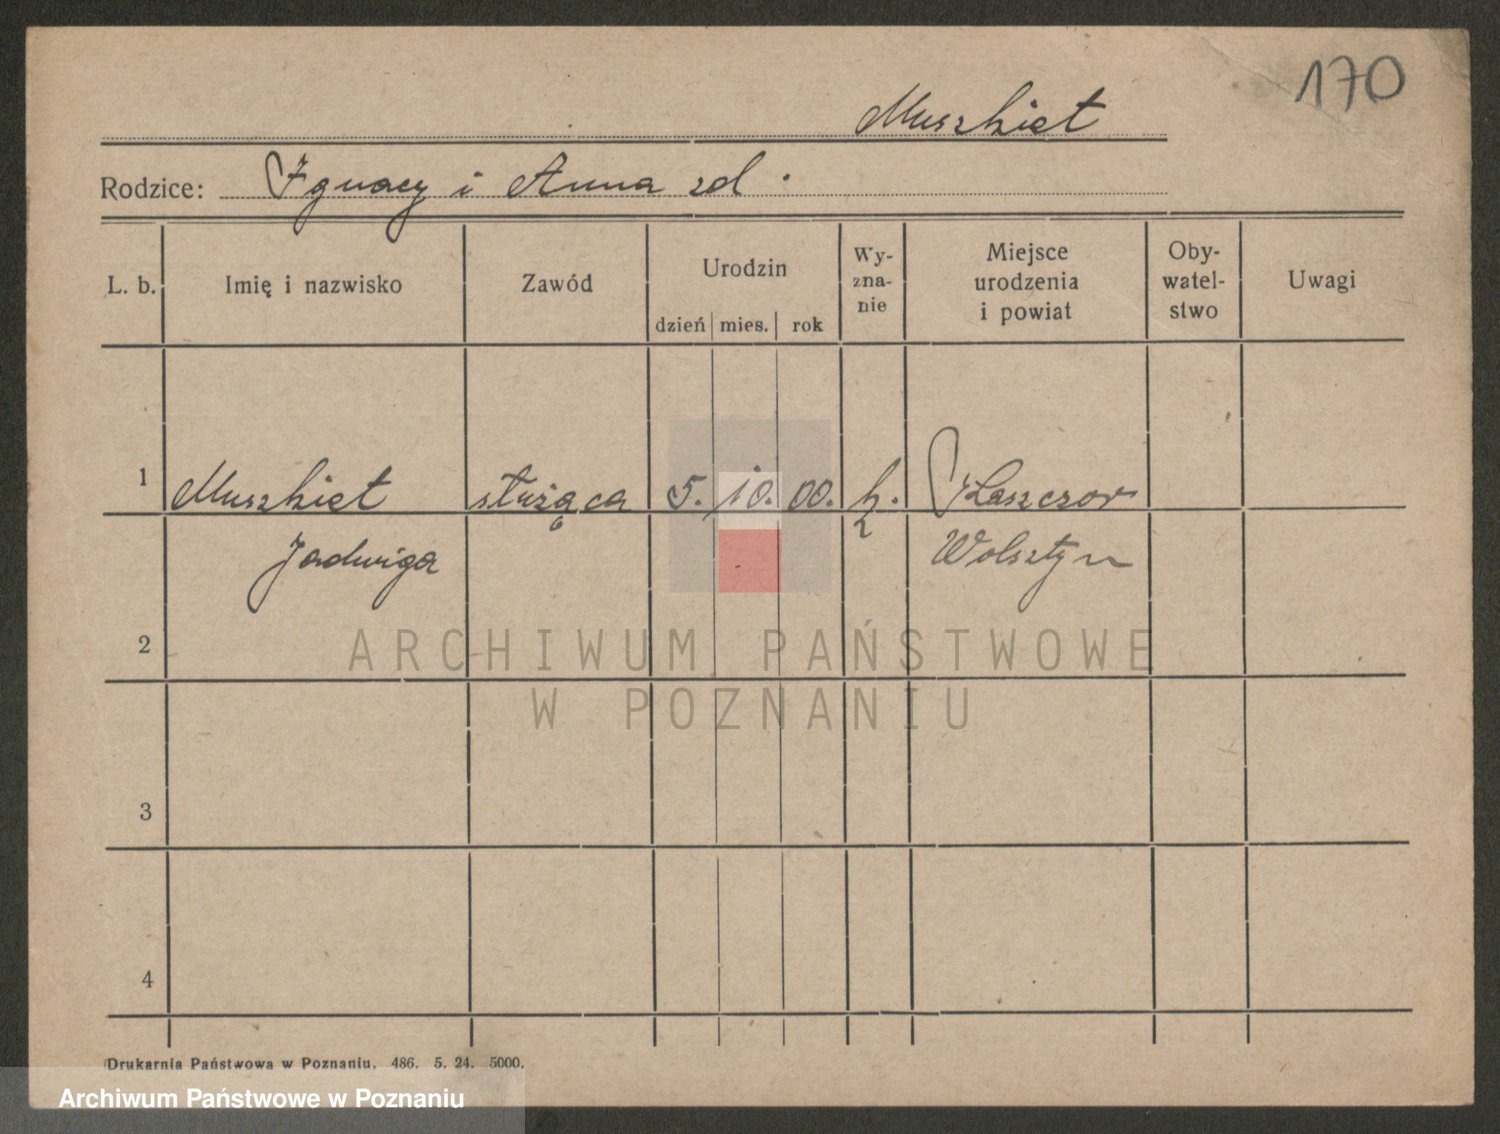 170
Muszkiet
Rodzice: Ignacy i Anna zd.
L. b. Imię i nazwisko Zawód Urodzin dzień mies. rok Wy-zna-nie Miejsce urodzenia i powiat Oby-watel-stwo Uwagi
1 Muszkiet służąca 5. 10. 00. k. Kaszczor
Jadwiga Wolsztyn
2
ARCHIWUM PAŃSTWOWE
W POZNANIU
3
4
Drukarnia Państwowa w Poznaniu. 486. 5. 24. 5000.
Archiwum Państwowe w Poznaniu